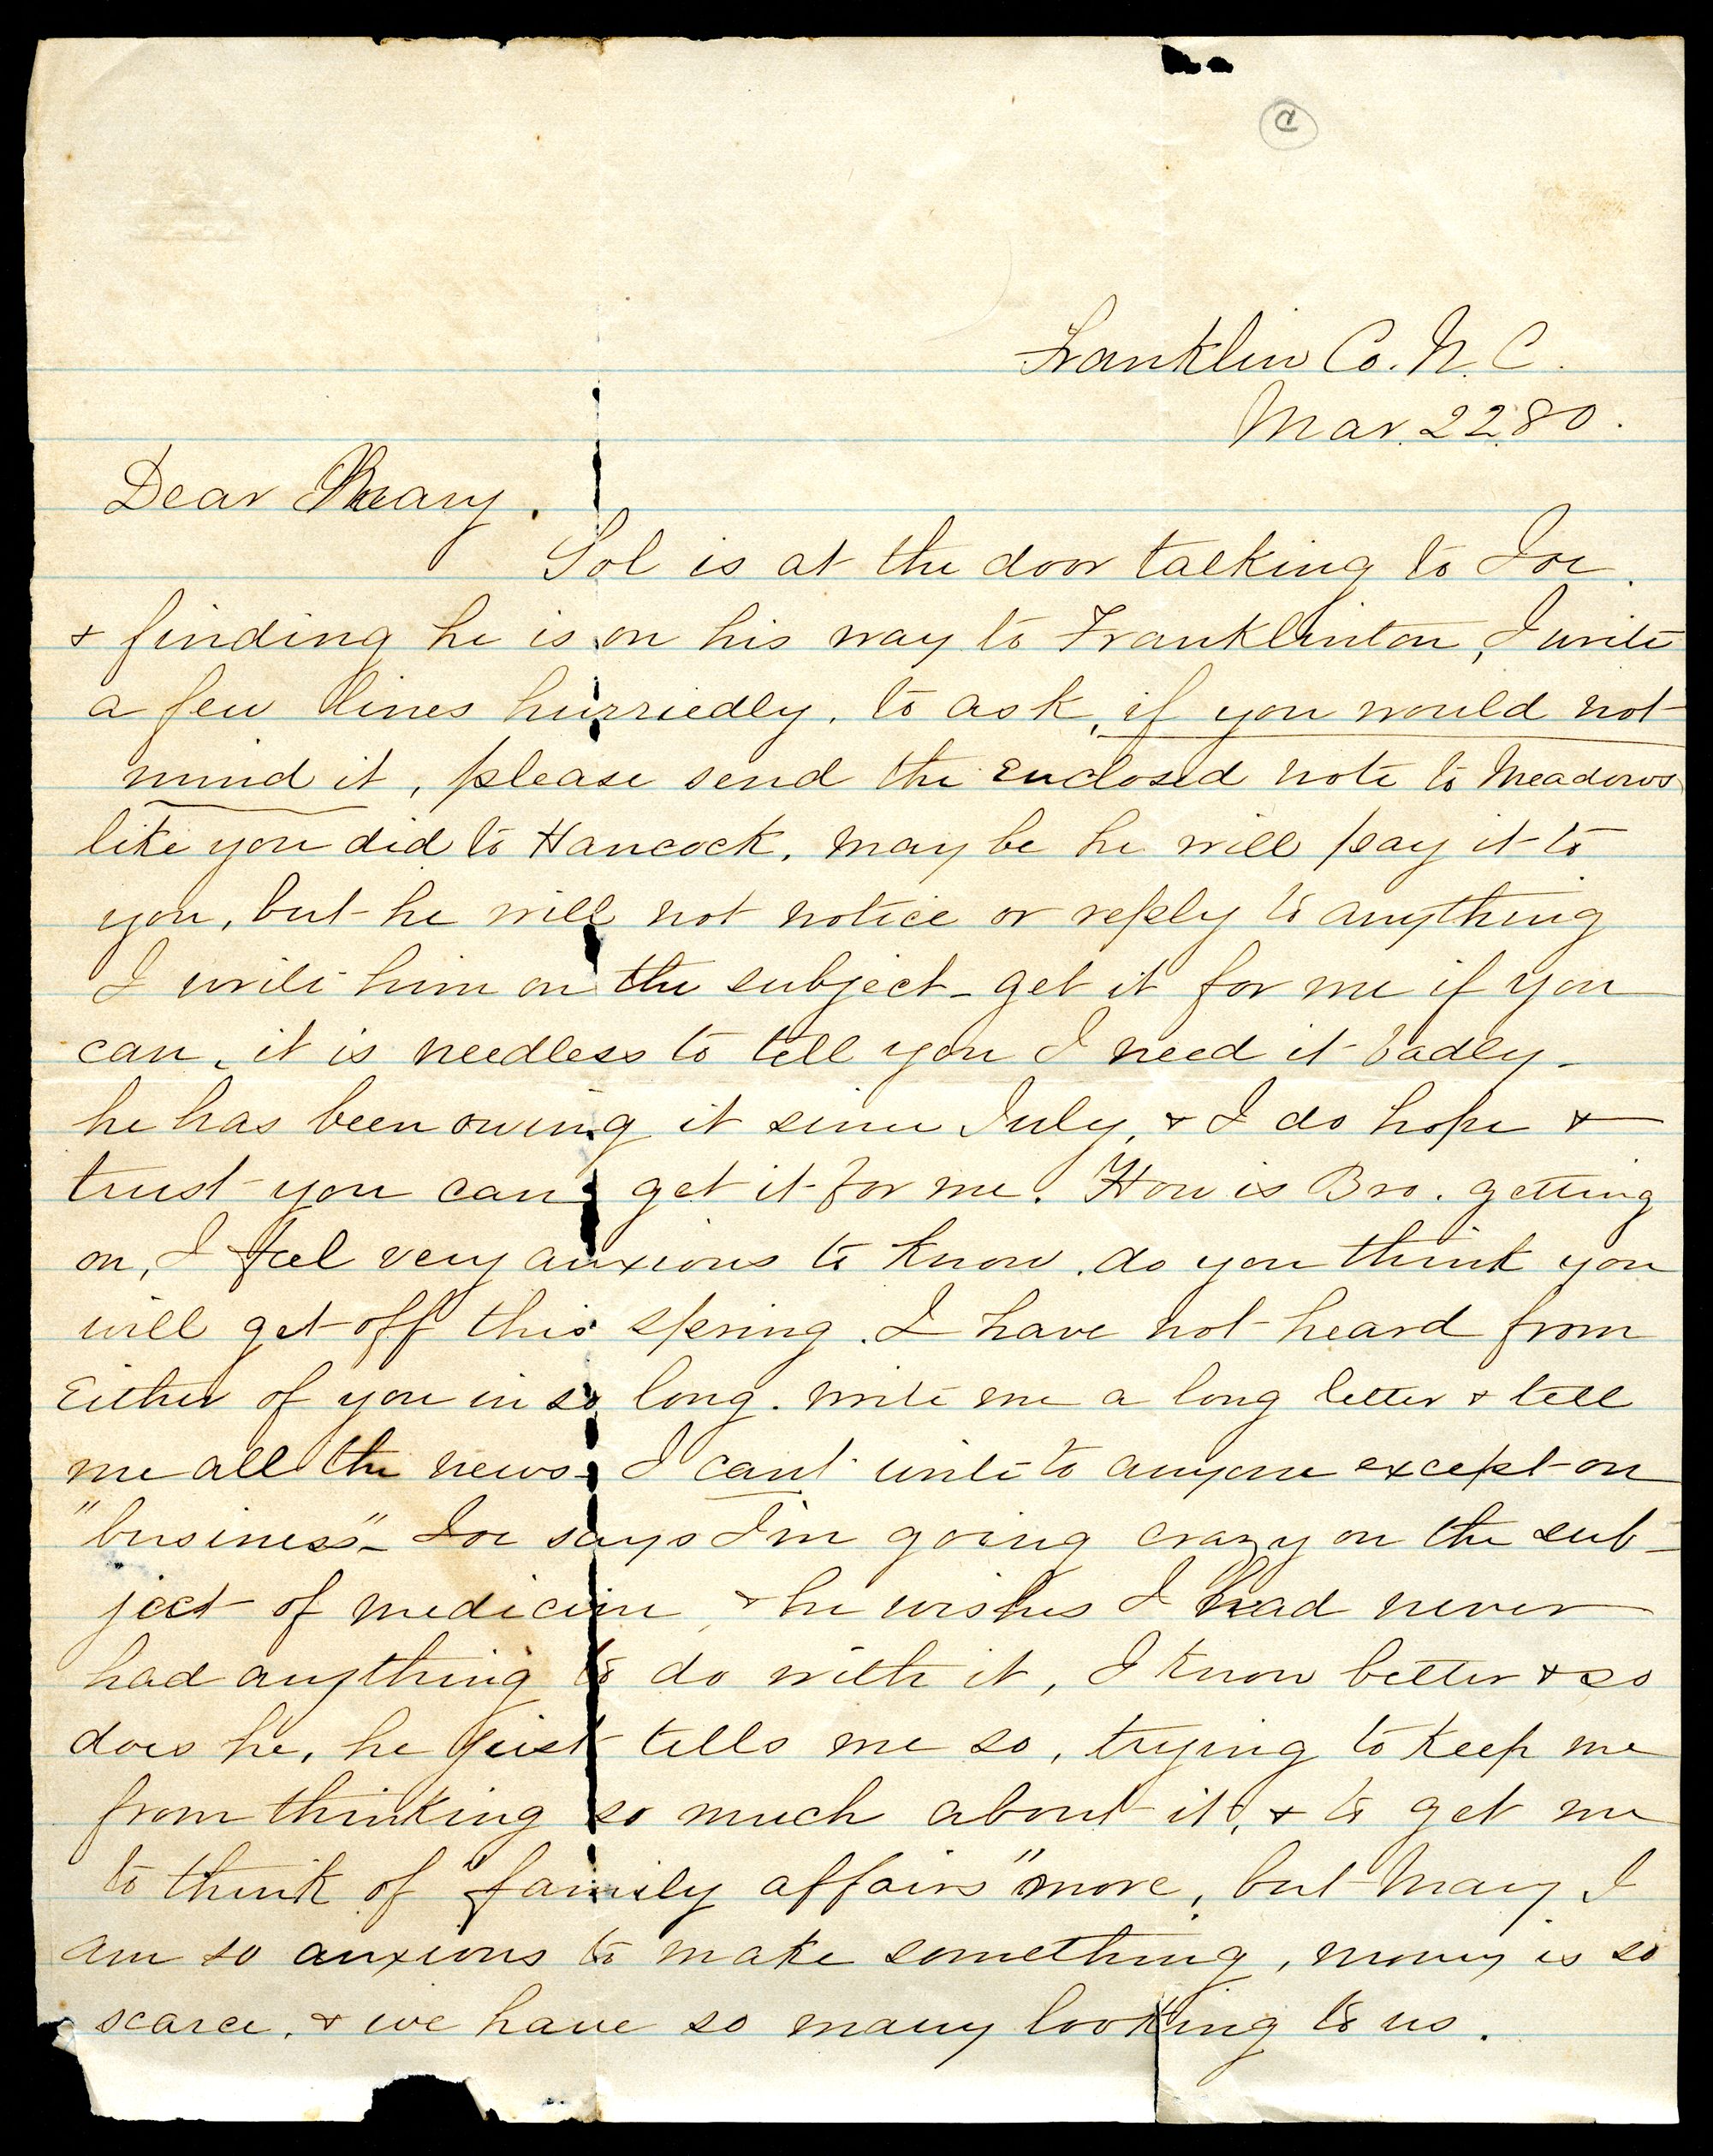 a
Franklin Co. N. C.
Mar. 22. 80.
Dear Mary.
Sol is at the door talking to Joe.
& finding he is on his way to Franklinton, I write
a few lines hurriedly, to ask, if you would not
mind it, please send the enclosed note to Meadows
like you did to Hancock, may be he will pay it to
you, but he will not notice or reply to anything
I write him on the subject - get it for me if you
can, it is needless to tell you I need it badly -
he has been owing it since July, & I do hope &
trust you can get it for me. How is Bro. getting
on, I feel very anxious to know. do you think you
will get off this spring. I have not heard from
Either of you in so long. write me a long letter & tell
me all the news - I cant write to anyone except on
"business" - Joe says I'm going crazy on the sub-
ject of medicine & he wishes I had never
had anything to do with it, I know better & so
does he, he just tells me so, trying to keep me
from thinking so much about it, & to get me
to think of "family affairs" more, but Mary I
am so anxious to make something, money is so
scarce, & we have so many looking to us.